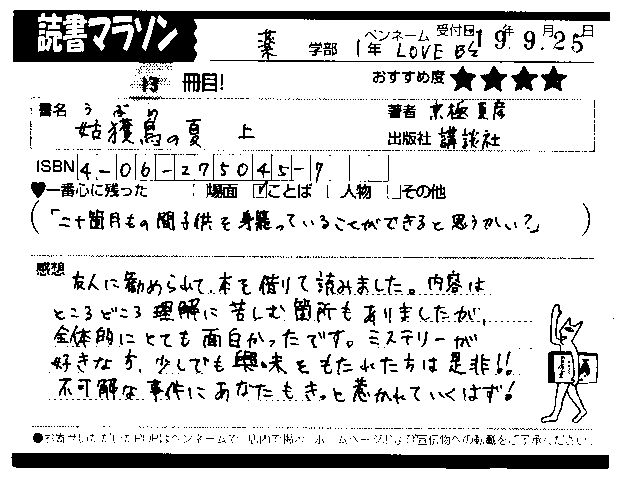 読書マラソン
薬 学部 1年 ペンネーム LOVE B'z 受付日 19年 9月 25日
13 冊目! おすすめ度 ★★★★
書名 うぶめ 姑獲鳥の夏 上
著者 京極夏彦
出版社 講談社
ISBN 4-06-275045-7
♥一番心に残った □場面 ☑ことば □人物 □その他
(「二十箇月もの間子供を身籠っていることができると思うかい?」)
感想 友人に勧められて、本を借りて読みました。内容は
ところどころ理解に苦しむ箇所もありましたが、
全体的にとても面白かったです。ミステリーが
好きな方、少しでも興味をもたれた方は是非!!
不可解な事件にあなたもきっと惹かれていくはず!
●お寄せいただいたPOPはペンネームで、店内で掲示・ホームページおよび宣伝物への転載をご了承ください。